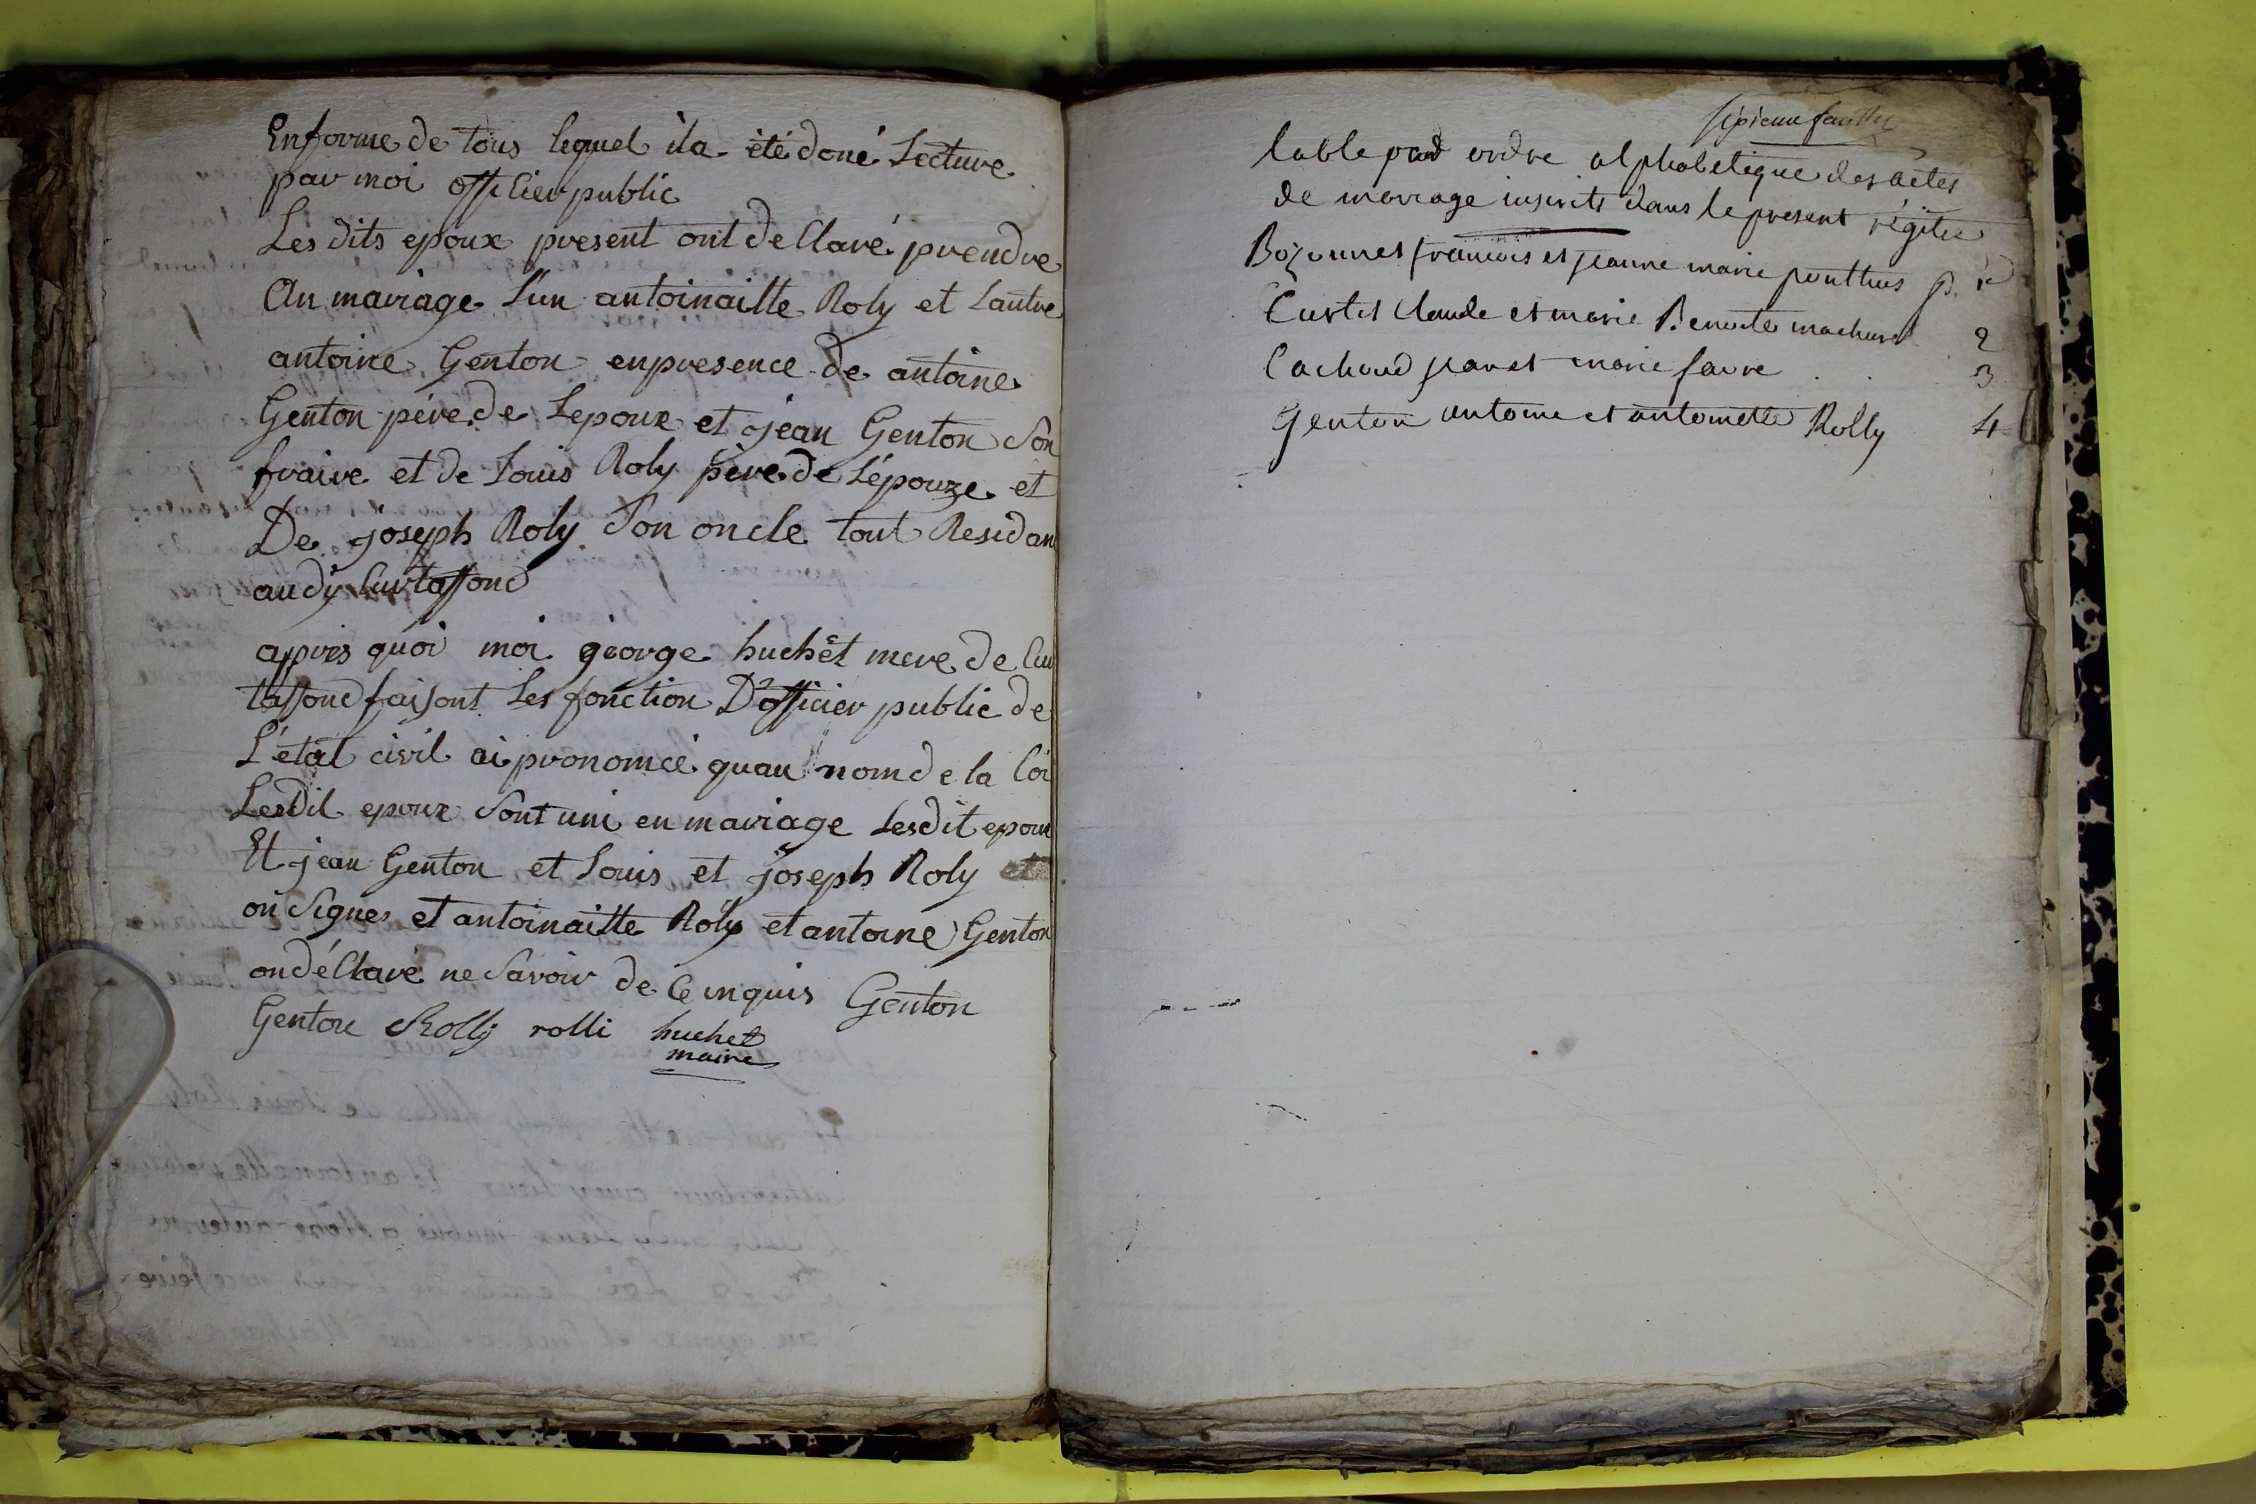 Enforme de tous lequel ila été doné Lecture
par moi officier public
Les dits epoux present ont de Claré prendre
An mariage l'un antoinaitte Roly et Lautre
antoine Genton enpresence de antoine
Genton pére de Lepoux et jean Genton Son
fraire et de Louis Roly père de Lépouze et
De joseph Roly Son oncle tout Residan
audy Curtafond
apres quoi moi george huchet mere de Cur
tafond faisont Les fonction D'officier public de
L'état civil ai prononcé quau nom de la loi
Lesdit epoux Sont uni en mariage Lesdit epoux
Et jean Genton et Louis et joseph Roly et
on Signes et antoinaitte Roly et antoine Genton
on déClaré ne Savoir de Ce inquis Genton
Genton Rolly rolli huchet
maire
table par ordre alphabetique des actes
de mariage inscrits dans le present régitre
francois et jeanne marie ponthus p. 1er
Curtet Claude et marie Benoite machurat 2
Cachoud jean et marie favre 3
Genton antoine et antoinette Rolly 4